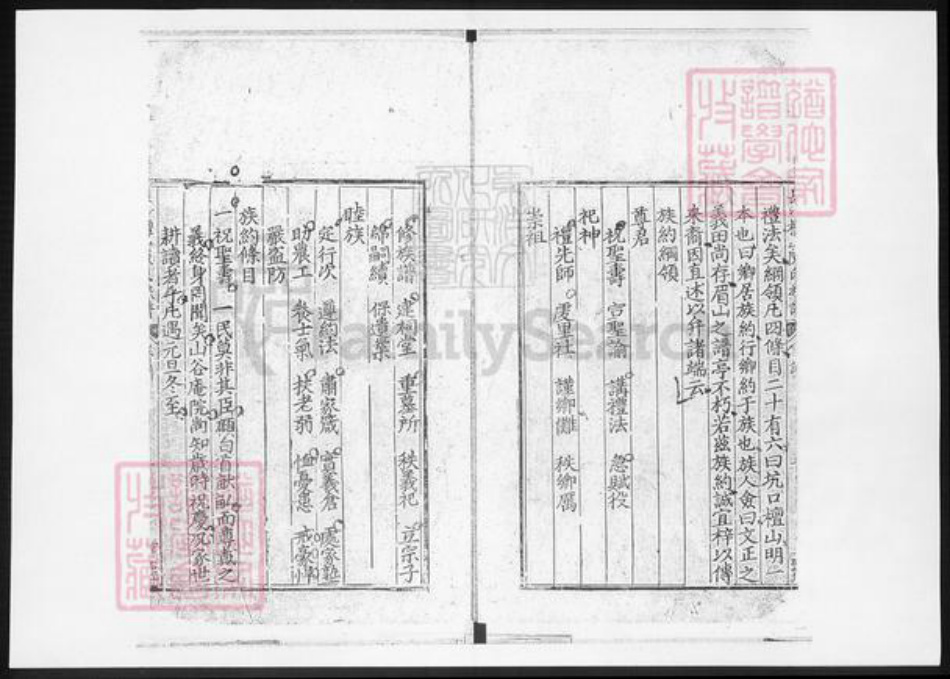 禮法矣綱領凡四條目二十有六曰坑口檀山明一
本也曰鄉居族約行鄉約于族也族人僉曰文正之
義田尚存眉山之譜亭不朽若茲族約誠宜梓以傳
來裔因直述以弁諸端云
族約綱領
尊君
祝聖壽 宣聖諭 講禮法 急賦役
祀神
禮先師 虔里社 謹鄉儺 秩鄉厲
崇祖
修族譜 建祠堂 重墓所 秩義祀 立宗子
綿嗣續 保遺業
睦族
定行次 遵約法 肅家箴 實義倉 處家塾
助農工 養士氣 扶老弱 恤憂患 戒豪悍
嚴盜防
族約條目
一祝聖壽 一民莫非其臣 而專責之
義終身罔聞矣山谷庵院尚知歲時祝慶況家世
耕讀者乎凡遇元旦冬至
FamilySearch